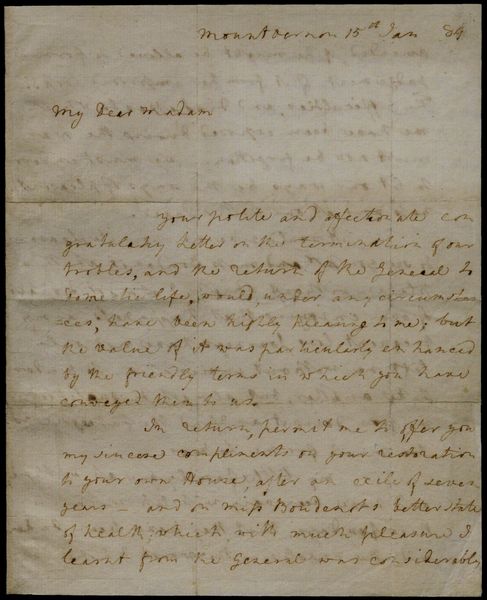 Mount Vernon 15th Jan 84
My Dear Madam
Your polite and affectionate con
gratulaty letter on the termenation of our
trobles, and the return of the General to
domestic life, would, under any circumstan
ces, have been highly pleasing to me; but
the value of it was particularly enhanced
by the friendly terms in which you have
conveyed them to us.
In return, permit me to offer you
my sincere compliments on your restoration
to your own House, after an exile of seven
years — and on Miss Boudenots better state
of health; which with much pleasure I
learnt from the General was considerably